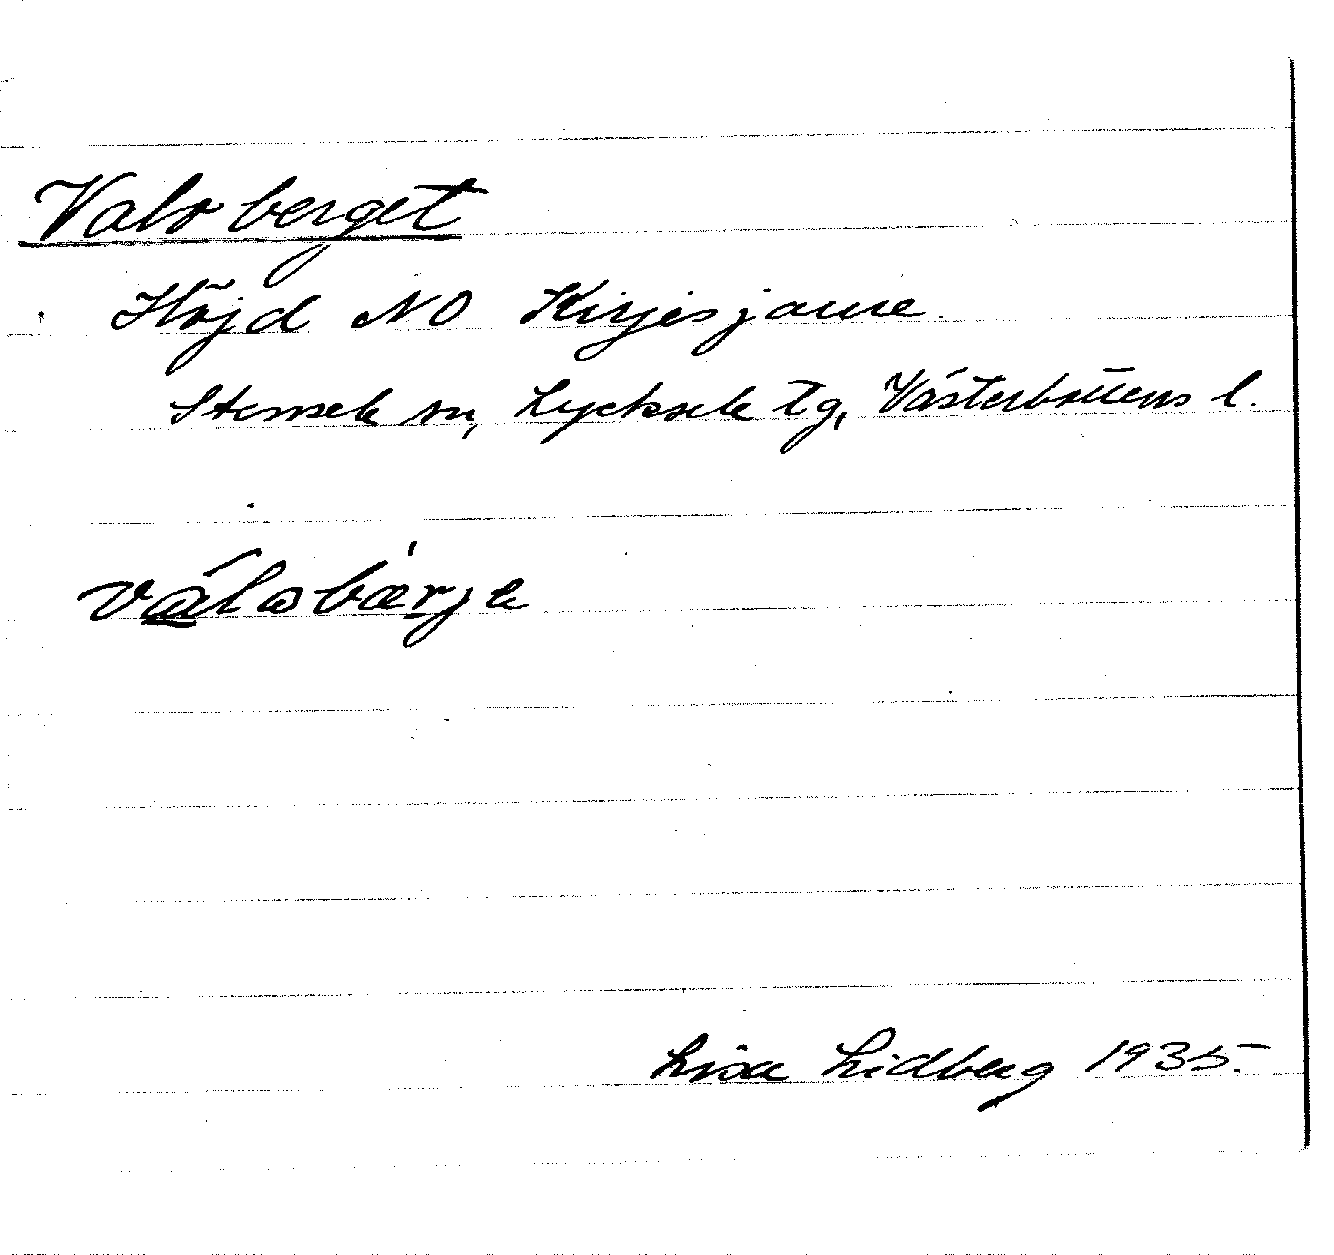 Valsberget
Höjd NO Kirjesjaure.
Stensele sn, Lycksele tg, Västerbottens l.
Lisa Lidberg 1935.